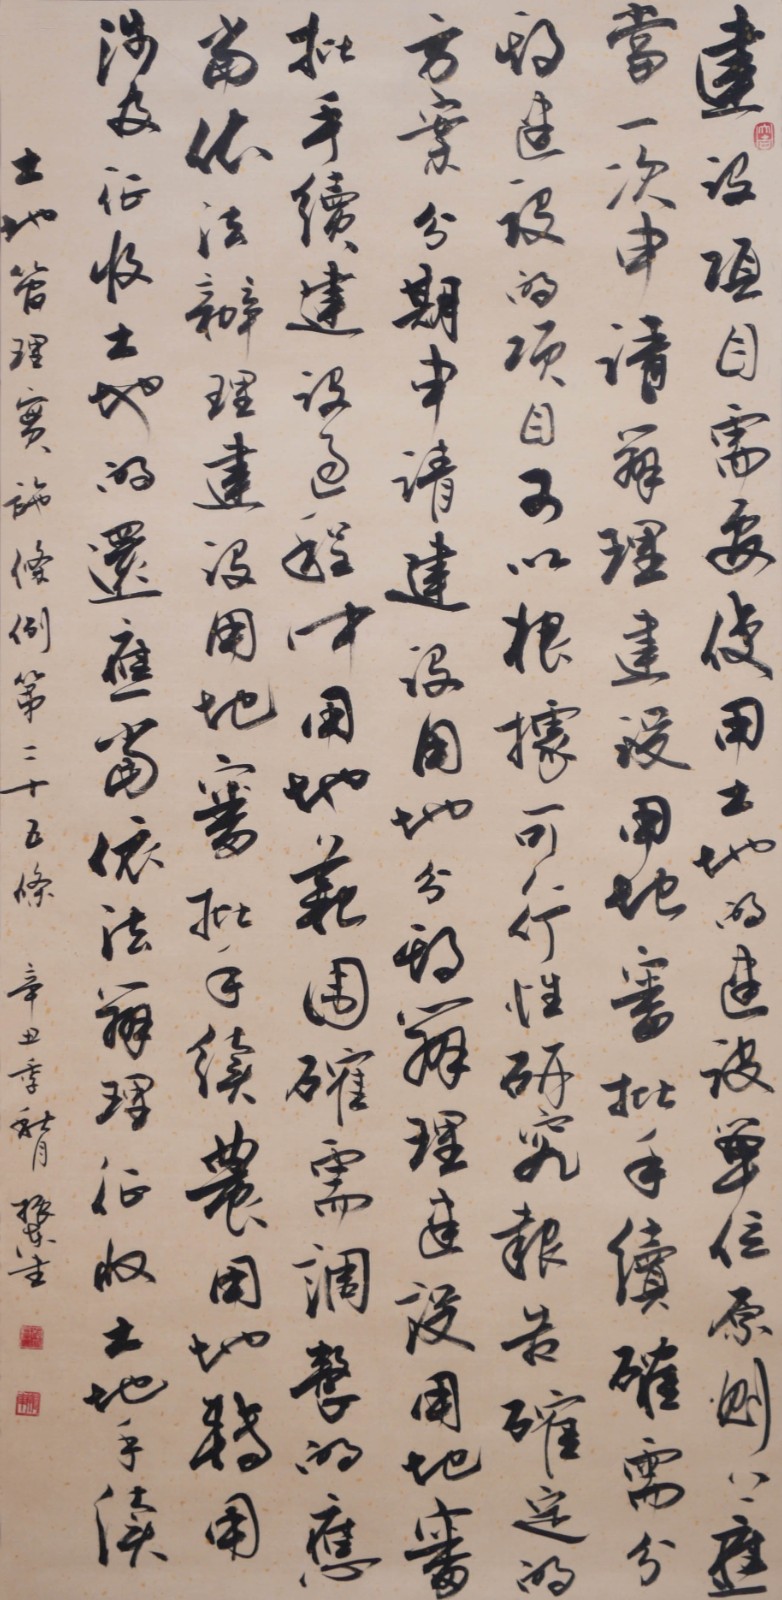 建設項目需要使用土地的建設單位原則上應
當一次申請辦理建設用地審批手續確需分
期建設的項目可以根據可行性研究報告確定的
方案分期申請建設用地分期辦理建設用地審
批手續建設過程中用地范圍確需調整的應
當依法辦理建設用地審批手續農用地轉用
涉及征收土地的還應當依法辦理征收土地手續
土地管理實施條例第二十五條 辛丑季秋月